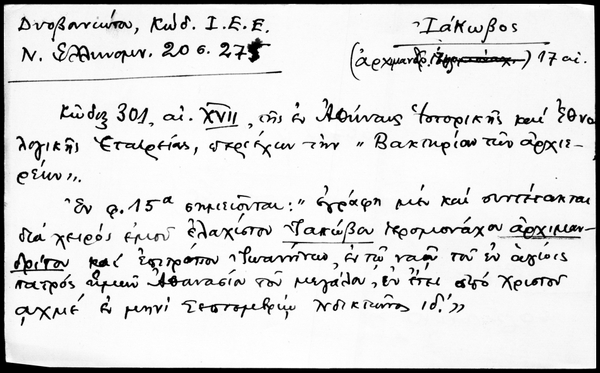 Δυοβανιώτου, Κώδ. Ι.Ε.Ε.
Ν. Ελληνομν. 20 σ. 275
Ἰάκωβος
(ἀρχιμανδρ. ) 17 αἰ.
Κῶδιξ 301, αἰ. XVII, τῆς ἐν Ἀθήναις Ἱστορικῆς καί Ἐθνο-
λογικῆς Ἑταιρείας, περιέχων τήν " Βακτηρίαν τῶν ἀρχιε-
ρέων".
Ἐν φ. 15α σημειοῦται: " ἐγράφη μέν καί συντέτακται
διά χειρός ἐμοῦ ἐλαχίστου Ἰακώβου ἱερομονάχου ἀρχιμαν-
δρίτου καί ἐπιτρόπου Ἰωαννίνων, ἐν τῷ ναῷ τοῦ ἐν ἁγίοις
πατρός ἡμῶν Ἀθανασίου τοῦ μεγάλου, ἐν ἔτει ἀπό Χριστοῦ
αχμέ ἐν μηνί Σεπτεμβρίῳ Ἰνδικτιῶνος ιδ'."